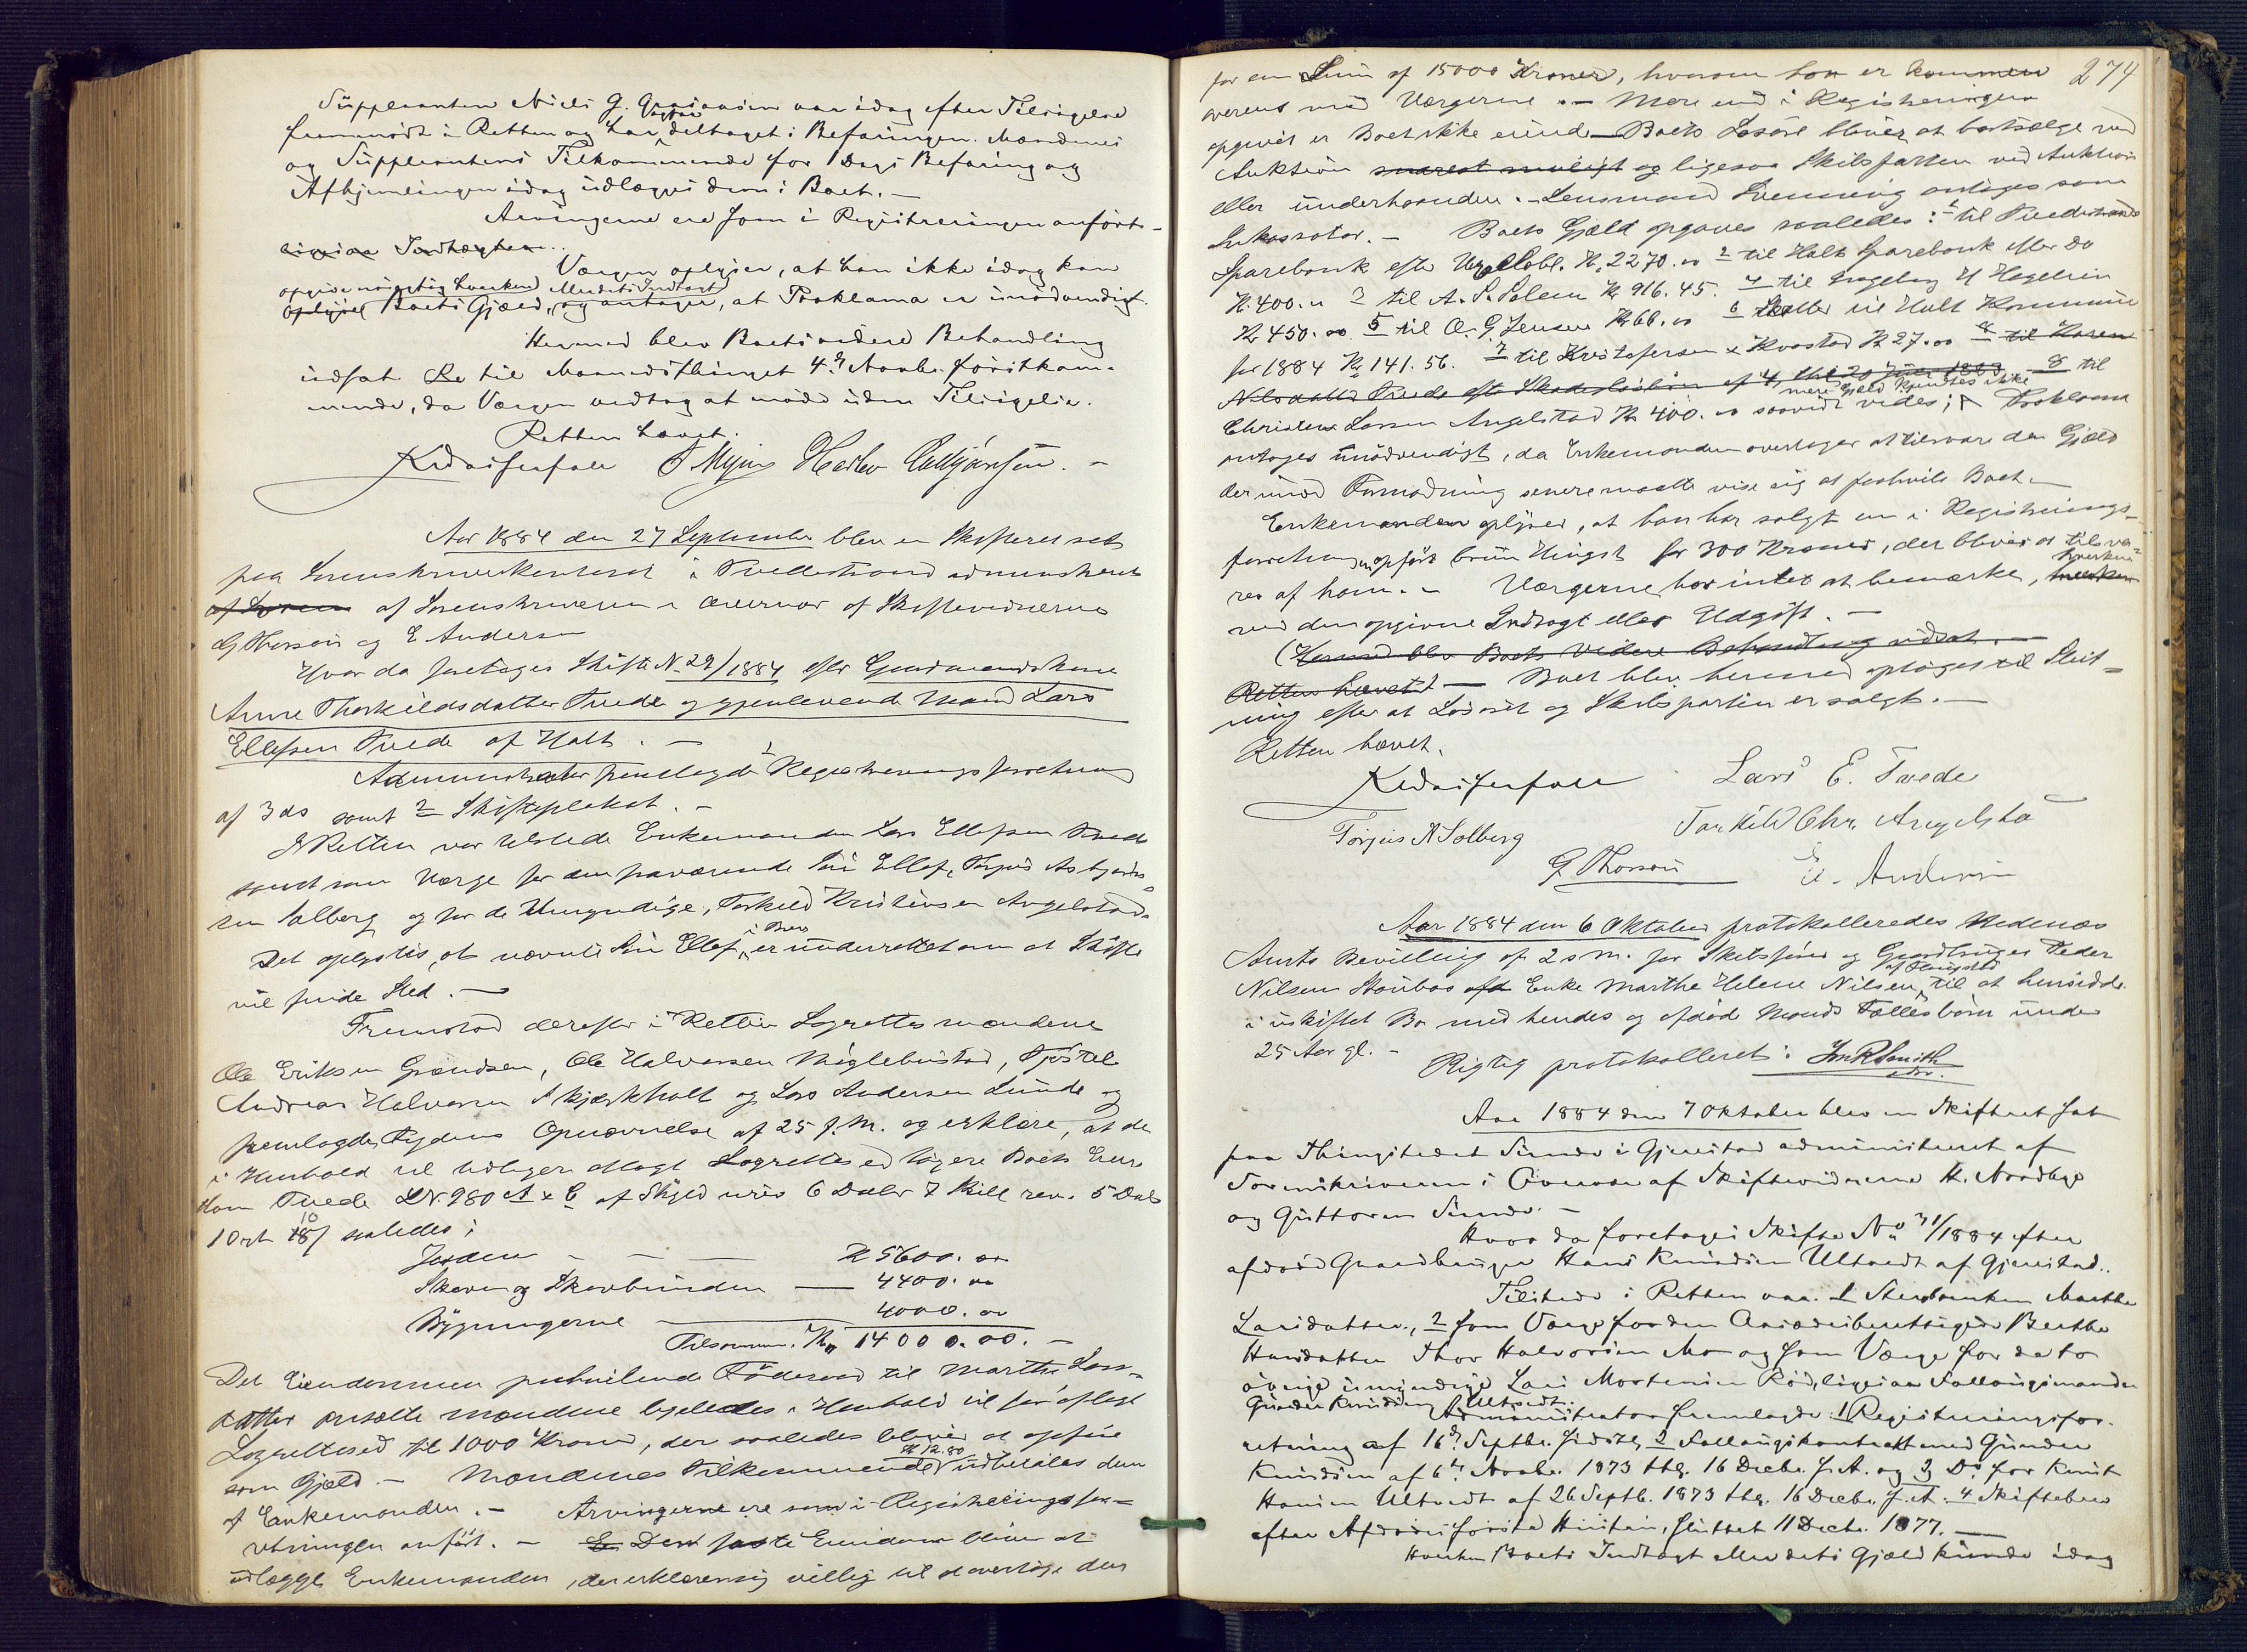 Suppleanten Niels G. var idag efter Tilsigelse
fremmødt i Retten og har deltaget i Befaringen. Mændenes
og Suppleantens Tilkommende for 1 Dags Befaring og
Afhjemlingen idag udlægges dem i Boet.—
Arvingerne ere som i Registreringen anført.
Værgen oplyser, at han ikke idag kan
opgive nøiagtig hverken Boets Indtægt
Boets Gjæld, og antager, at Proklama er unødvendigt.
Hermed blev Boets videre Behandling
udsat til Maanedsthinget 4de Novbr. førstkom-
mende, da Værgen vedtog at møde uden Tilsigelse.
Retten hævet.
Aar 1884 den 27 September blev en Skifteret sat
paa Sorenskriverkontoret i Tvedestrand administreret
af Sorenskriveren i Overvær af Skiftevidnerne
G Thorsen og E Andersen
Hvor da foretages Skifte N. 29/1884 efter Gaardmandskone
Anne Thorkildsdatter Tvede og gjenlevende Mand Lars
Ellefsen Tvede af Holt. —
Administrator fremlagde 1 Registreringsforretning
af 3 ds samt 2 Skifteplakat. —
I Retten var tilstede Enkemanden Lars Ellefsen Tvede
samt som Værge for den fraværende Søn Ellef, Torjus Asbjørns-
sen Solberg og for de Umyndige, Torkild Kristensen Angelstad.
Det oplystes, at nævnte Søn Ellef i Brev er underrettet om at Skifte
vil finde Sted. —
Fremstod derefter i Retten Lagrettesmændene
Ole Eriksen Grændsen, Ole Halvorsen Møglebustad,
Andreas Halvorsen Skjærkholt og Lars Andersen Lunde og
fremlagde Fogdens Opnævnelse af 25 f. M. og erklære, at de
i Henhold til tidligere aflagt Lagrettesed taxere Boets Eien-
dom Tvede LN. 280 A & C af Skyld urev. 6 Daler 7 Skill rev. 5 Daler
1 Ort 10 s saaledes:
Jorden — — — Kr 5600. 00
Skoven og Skovbunden — 4400. 00
Bygningerne — 4000. 00
Tilsammen. Kr. 14000.00. —
Det Eiendommen paahvilende Føderaad til Marthe Lars-
datter ansatte Mændene ligeledes i Henhold til før aflagt
Lagrettesed til 1000 Kroner, der saaledes bliver at opføre
som Gjæld. — Mændenes Tilkommende Kr 12.80 udbetales dem
af Enkemanden. — Arvingerne ere som i Registreringsfor-
retningen anført. — Den faste Eiendom bliver at
udlægge Enkemanden, der erklærer sig villig til at overtage den
274
for en Sum af 15000 Kroner, hvorom han er kommen
overens med Værgerne. — Mere end i Registreringen
opgivet er Boet ikke eiende — Boets Løsøre bliver at bortsælge ved
Auktion snarest muligt og ligesaa Skibsparten ved Auktion
eller underhaanden. — Lensmand Svenning antages som
Inkassator. — Boets Gjæld opgaves saaledes: 1 til Tvedestrands
Sparebank efter Kr. 2270.00 2 til Holt Sparebank efter Do
Kr. 400.00 3 til A. P. Solem Kr 916.45. 4 til Ingeborg
Kr 450.00 5 til O. G. Jensen Kr 68.00 6 Skatter til Holt Kommune
for 1884 Kr 141.56. 7 til Kristofersen & Kvastad Kr 27.00 8 til Karen
Nilsdatter Tvede efter Skadesløsbrev af 8 til
Christen Larsen Angelstad Kr 400.00 mere Gjæld kjendtes ikke saavidt vides; Proklama
antages unødvendigt, da Enkemanden overtager at tilsvare den Gjæld
der imod Formodning senere maatte vise sig at paahvile Boet.—
Enkemanden oplyser, at han har solgt en i Registrerings-
forretningen opført brun Hingst for 300 Kroner, der bliver at tilsva-
res af ham. — Værgerne har intet at bemærke, hverken
ved den opgivne Indtægt eller Udgift. —
(Hermed blev Boets videre Behandling udsat. —
Retten hævet) — Boet blev hermed optaget til Slut-
ning efter at Løsøret og Skibsparten er solgt. —
Retten hævet.
Lars E. Tvede
Torjus A Solberg
Torkild Chr. Angelstad
G. Thorsen
E. Andersen
Aar 1884 den 6 Oktober protokolleredes Nedenæs
Amts Bevilling af 2 s M. for Skibsfører og Gaardbruger Peder
Nilsen Staubøs Enke Marthe Helene Nilsen til at hensidde
i uskiftet Bo med hendes og afdød Mands Fællesbørn under
25 Aar gl. —
Rigtig protokolleret: Smith
Aar 1884 den 7 Oktober blev en Skifteret sat
paa Thingstedet Sunde i Gjerestad administreret af
Sorenskriveren i Overvær af Skiftevidnerne H. Nordbye
og Guttorm Sunde. —
Hvor da foretages Skifte No 31/1884 efter
afdøde Gaardbruger Hans Knudsen Ultvedt af Gjerestad.
Tilstede i Retten var 1 Sterboenken Marthe
Larsdatter, 2 som Værge for den Aasædesberettigede Berthe
Hansdatter Thor Halvorsen Mo og som Værge for de to
øvrige umyndige Lars Mortensen Rød, ligesaa Kallougsmanden
Gunder Knudsen Ultvedt.
Administrator fremlagde: 1 Registreringsfor-
retning af 16de Septbr. sidstl, 2 Kallougskontrakt med Gunder
Knudsen af 6te Novbr. 1873 thl. 16 Decbr. s. A. og 3 Do for Knut
Hansen Ultvedt af 26 Septb. 1873 thl. 16 Decbr. s. A. 4 Skiftebrev
efter Afdødes første Hustru, sluttet 11 Decbr. 1877. —
Hverken Boets Indtægt eller dets Gjæld kunde idag